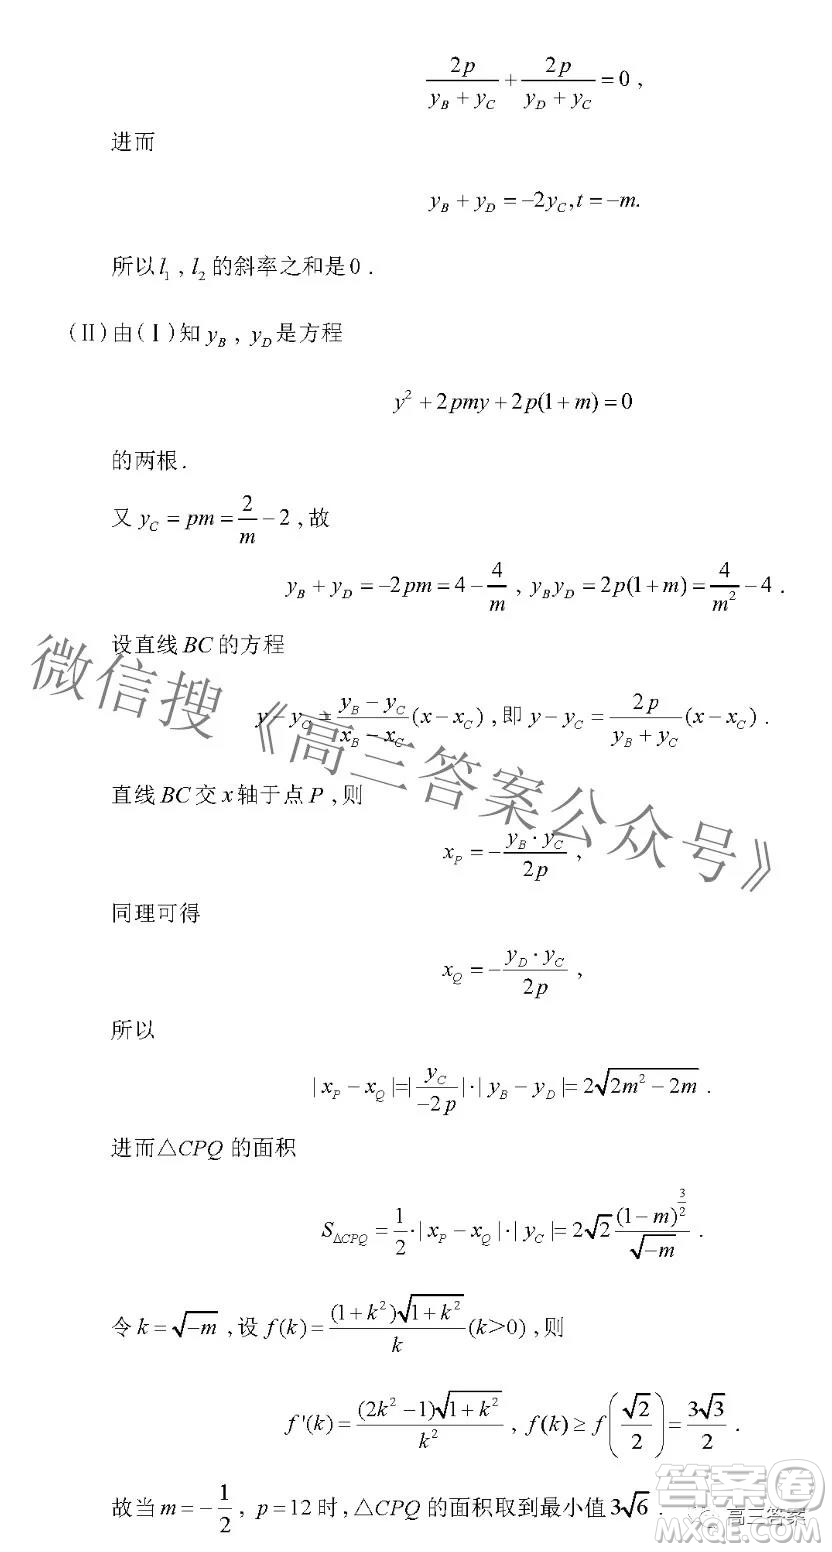 2p/(y_B + y_C) + 2p/(y_D + y_C) = 0 ,
进而
y_B + y_D = -2y_C, t = -m.
所以 l_1 , l_2 的斜率之和是 0 .
(Ⅱ) 由(Ⅰ)知 y_B , y_D 是方程
y^2 + 2pmy + 2p(1 + m) = 0
的两根 .
又 y_C = pm = 2/m - 2 , 故
y_B + y_D = -2pm = 4 - 4/m , y_B y_D = 2p(1 + m) = 4/m^2 - 4 .
设直线 BC 的方程
y - y_C = (y_B - y_C)/(x_B - x_C) (x - x_C) , 即 y - y_C = 2p/(y_B + y_C) (x - x_C) .
直线 BC 交 x 轴于点 P , 则
x_P = -(y_B · y_C)/2p ,
同理可得
x_Q = -(y_D · y_C)/2p ,
所以
| x_P - x_Q |=| y_C/(-2p) | · | y_B - y_D |= 2√(2m^2 - 2m) .
进而△CPQ 的面积
S_△CPQ = 1/2 · | x_P - x_Q | · | y_C |= 2√2 (1 - m)^(3/2)/√(-m) .
令 k = √(-m) , 设 f(k) = (1 + k^2)√(1 + k^2)/k (k>0) , 则
f'(k) = (2k^2 - 1)√(1 + k^2)/k^2 , f(k) ≥ f(√2/2) = 3√3/2 .
故当 m = -1/2 , p = 12 时 , △CPQ 的面积取到最小值 3√6 .
微信搜《高三答案公众号》
答案圈
高三答案
MXQE.COM